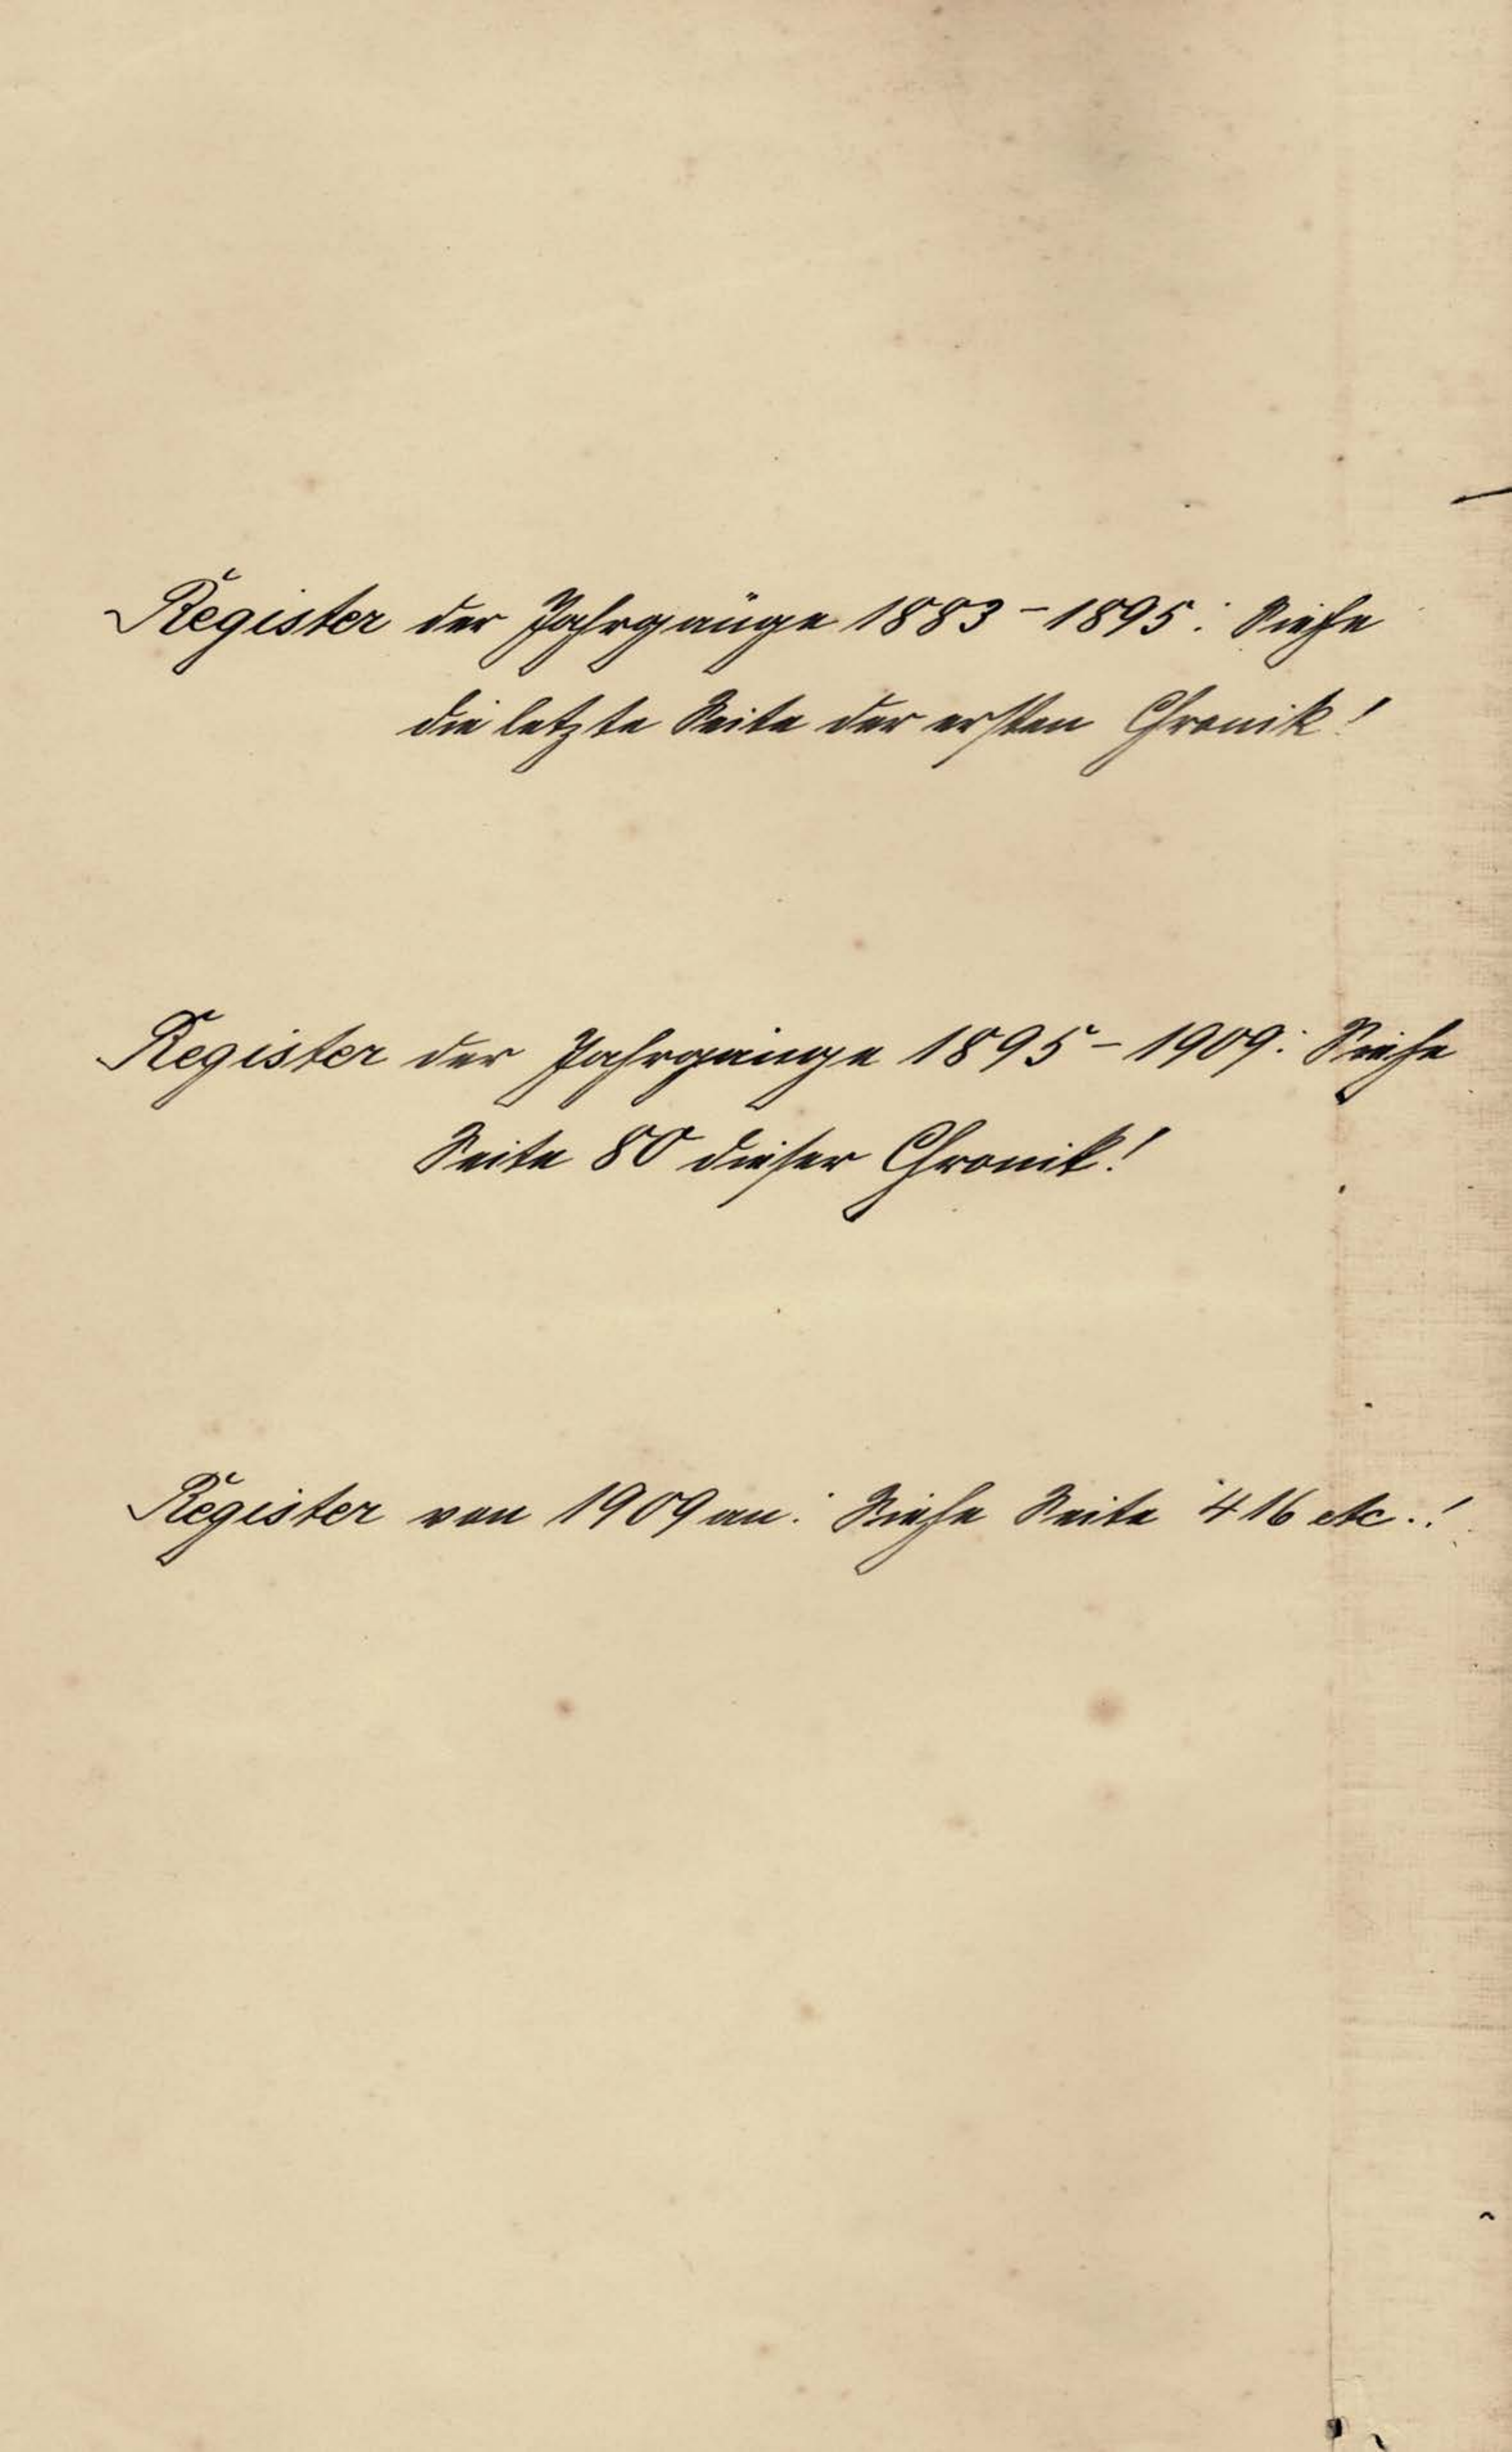 Register der Jahrgänge 1883-1895: Siehe
die letzte Seite der ersten Chronik!
Register der Jahrgänge 1895-1909: Siehe
Seite 80 dieser Chronik!
Register von 1909 an: Siehe Seite 416 etc..!